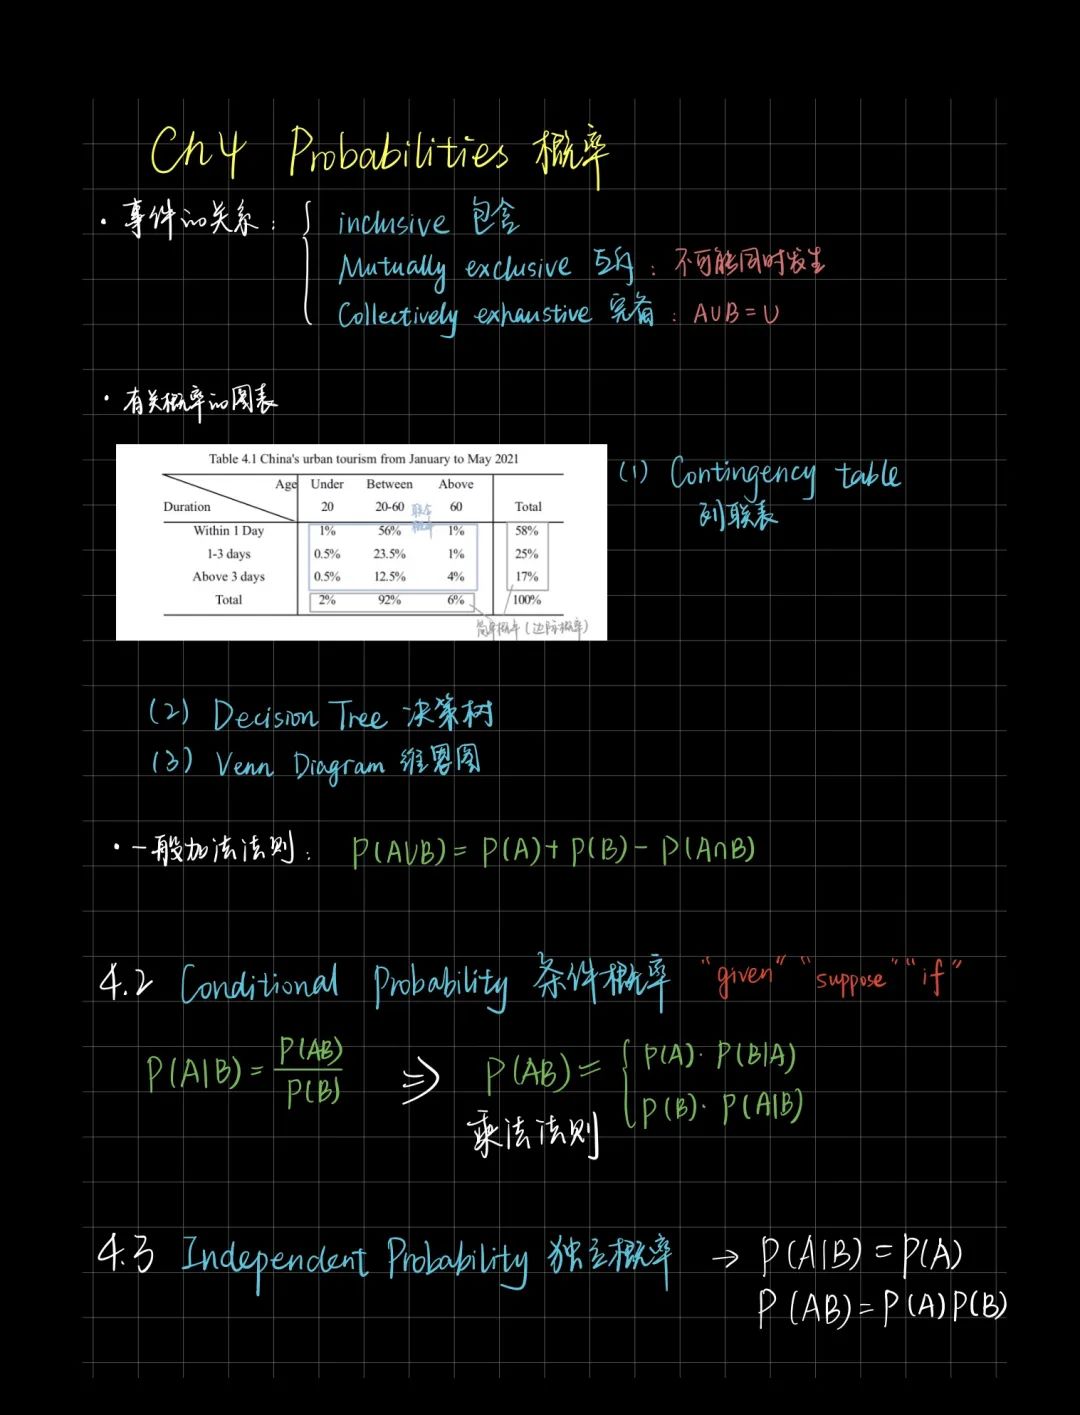 Ch4 Probabilities 概率
· 事件的关系: { inclusive 包含
Mutually exclusive 互斥: 不可能同时发生
Collectively exhaustive 完备: A∪B=U
· 有关概率的图表
Table 4.1 China's urban tourism from January to May 2021
Age Under Between Above
Duration 20 20-60 60 Total
联合
概率
Within 1 Day 1% 56% 1% 58%
1-3 days 0.5% 23.5% 1% 25%
Above 3 days 0.5% 12.5% 4% 17%
Total 2% 92% 6% 100%
简单概率(边际概率)
(1) Contingency table
列联表
(2) Decision Tree 决策树
(3) Venn Diagram 维恩图
· 一般加法法则: P(A∪B)= P(A)+ P(B)- P(A∩B)
4.2 Conditional Probability 条件概率 "given" "suppose" "if"
P(A|B)= P(AB)/P(B) ⇒ P(AB)= { P(A)· P(B|A)
P(B)· P(A|B)
乘法法则
4.3 Independent Probability 独立概率 → P(A|B)=P(A)
P(AB)=P(A)P(B)